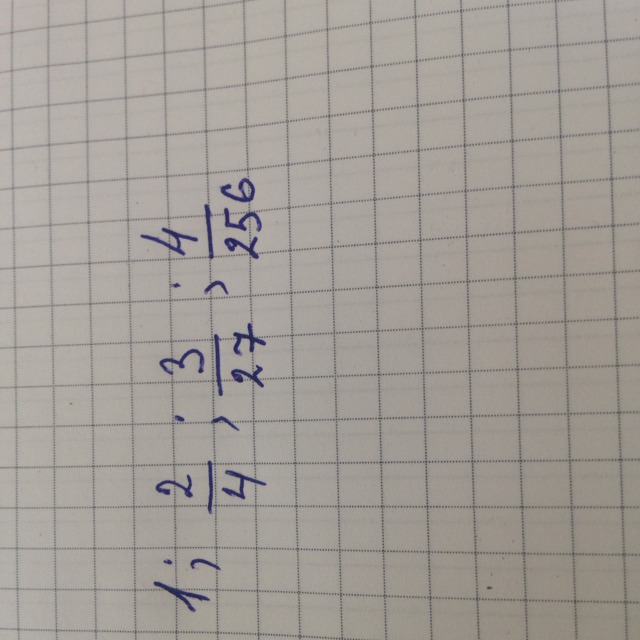 1; 2/4; 3/27; 4/256